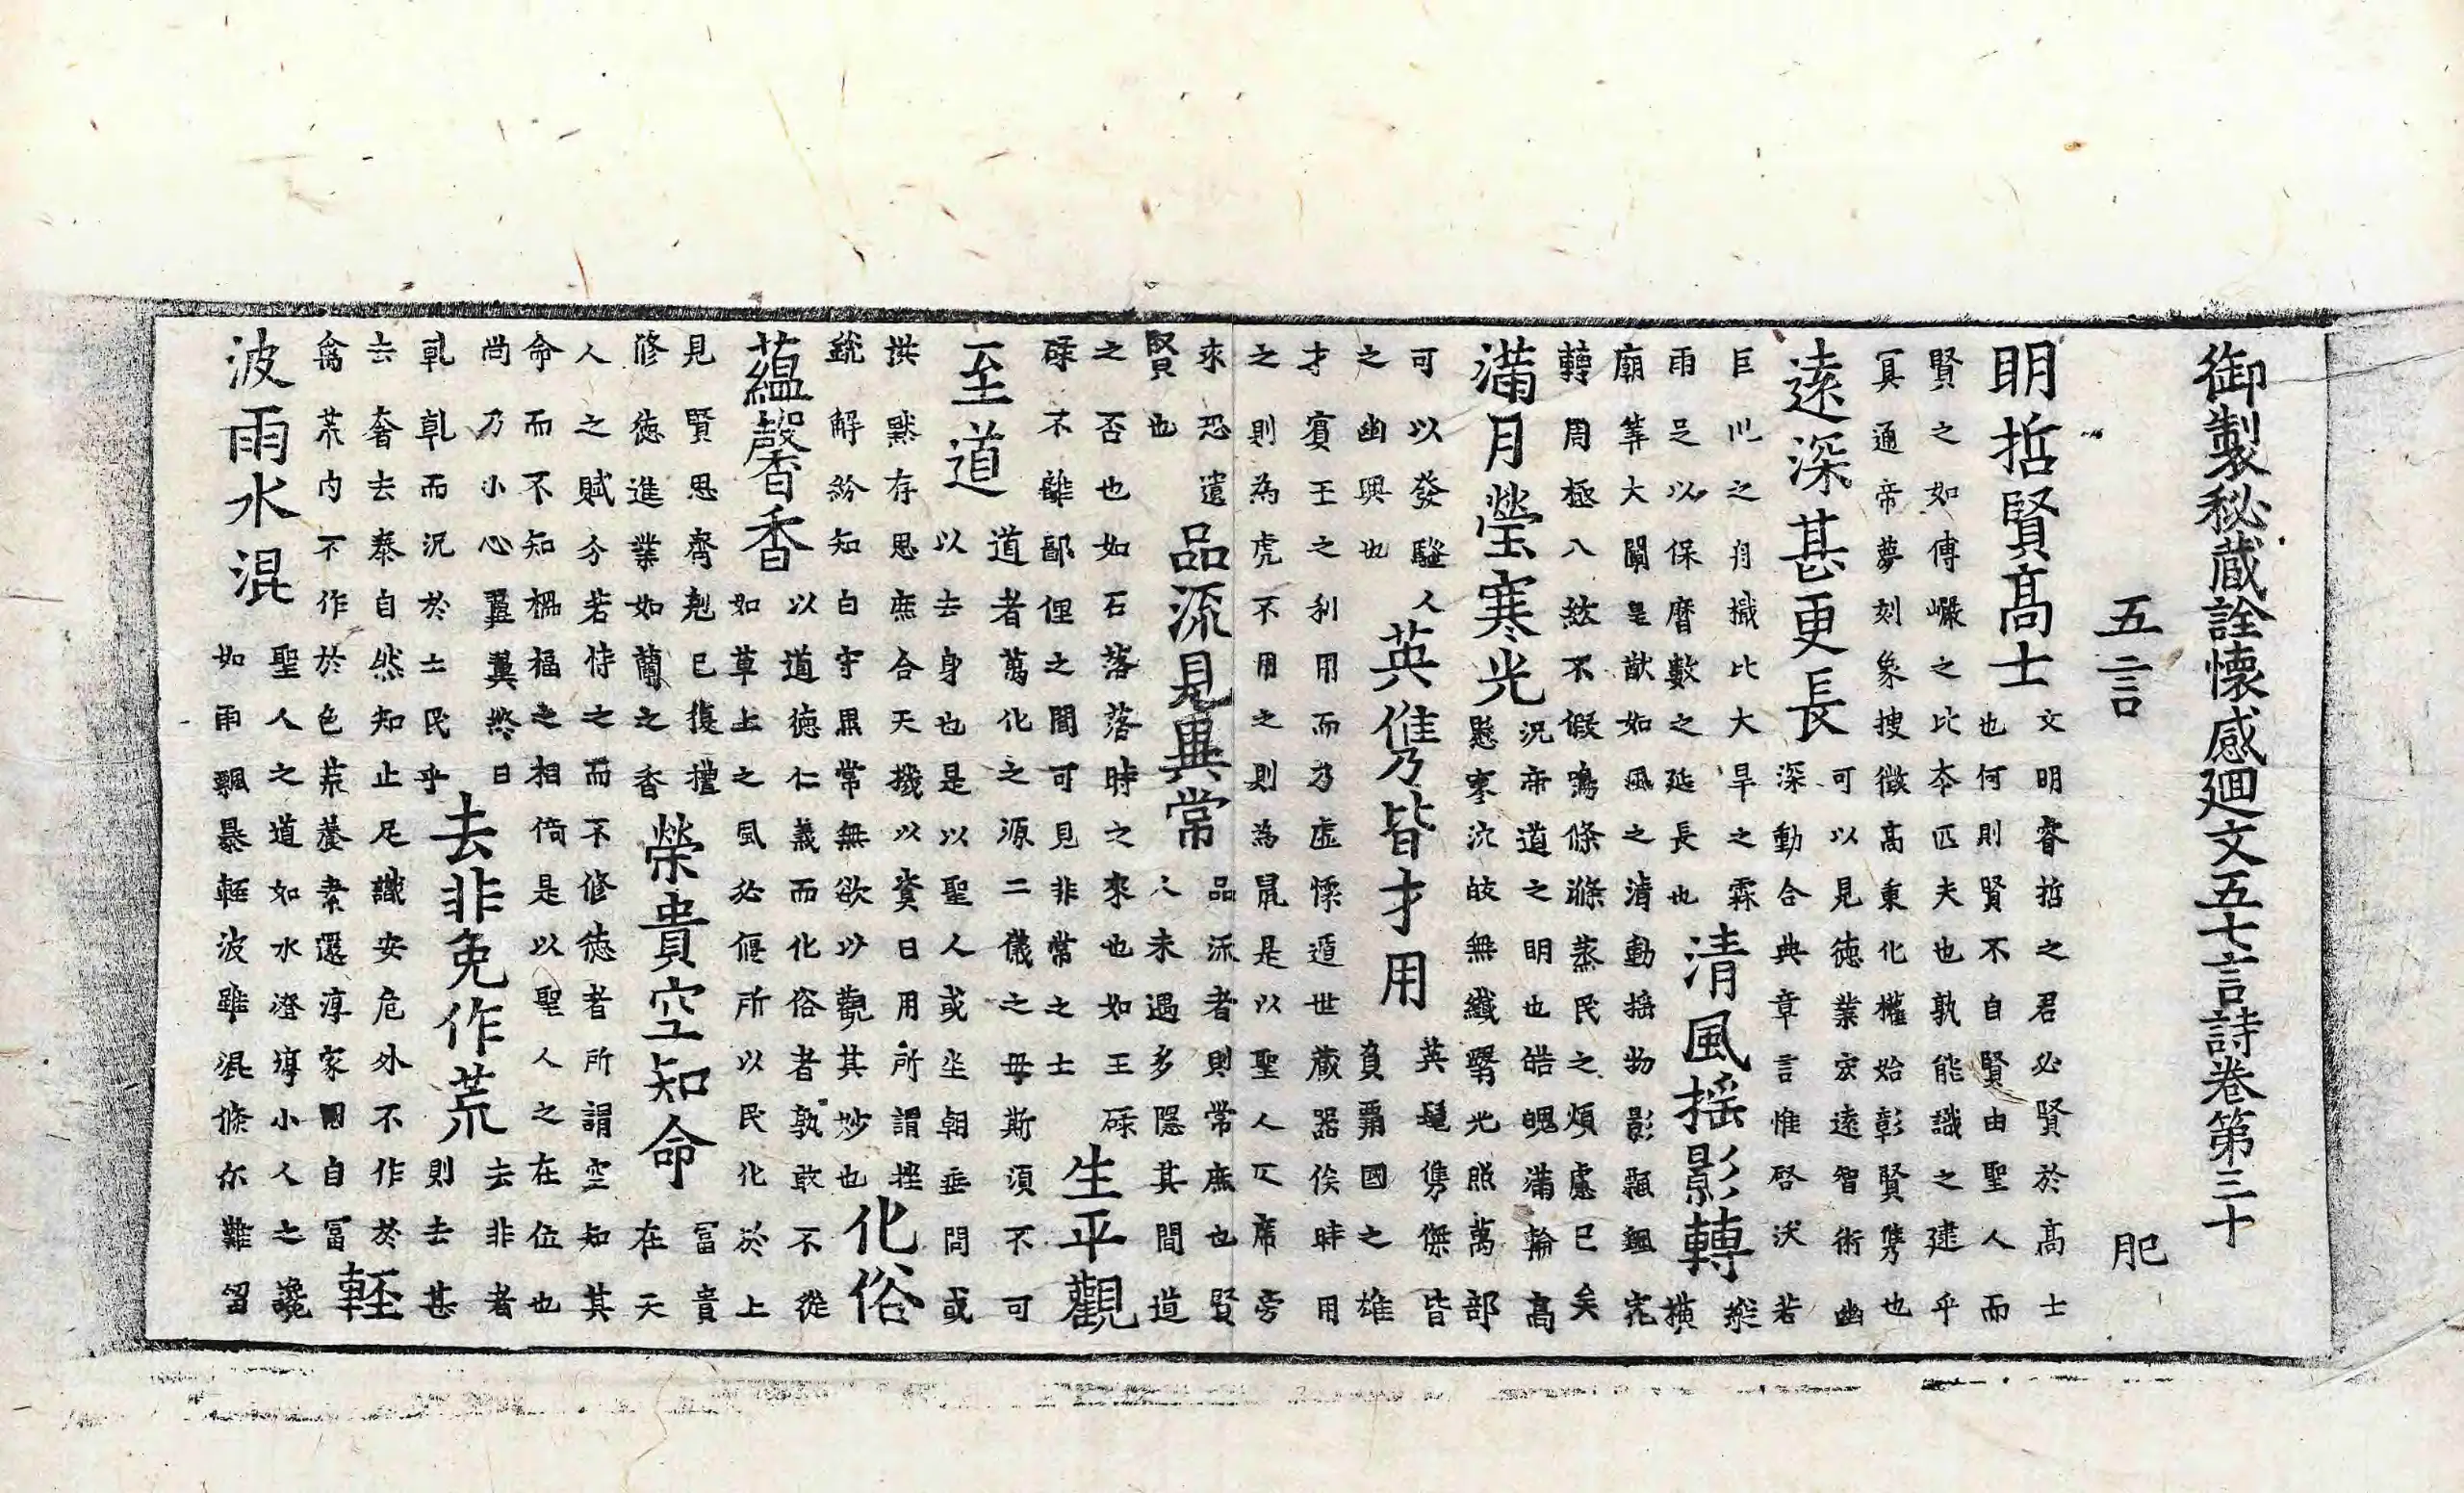 御製秘蔵詮懷感廻文五七言詩卷第三十
五言 肥
明哲賢高士
文明睿哲之君必賢於高士
也何則賢不自賢由聖人而
賢之如傅巖之比夲匹夫也孰能識之建乎
冥通帝夢刻象搜徵高秉化權始彰賢雋也
遠深甚更長
可以見徳業宏遠智術幽
深動合典章言惟啓沃若
巨川之舟檝比大旱之霖
雨足以保曆數之延長也
清風揺影轉
縱
横
廟筭大闡皇猷如風之清動揺物影飄颻宛
轉周極八紘不假鳴條滌蒸民之煩慮已矣
滿月瑩寒光
況帝道之明也皓魄滿輪高
懸寒沈皎無纖翳光照萬部
可以發騷人
之幽興也
英儁皆才用
英髦雋傑皆
負覇國之雄
才賓王之利用而乃虛懷遁世蔵器俟時用
之則為虎不用之則為鼠是以聖人仄席旁
求恐遺
賢也
品流見異常
品流者則常庶也賢
人未遇多隱其間道
之否也如石落落時之來也如玉碌
碌不離鄙俚之間可見非常之士
生平觀
至道
道者萬化之源二儀之毋斯須不可
以去身也是以聖人或坐朝垂問或
拱黙存思庶合天機以資日用所謂挫
銳解紛知白守黒常無欲以觀其妙也
化俗
蘊馨香
以道徳仁義而化俗者孰敢不從
如草上之風必偃所以民化於上
見賢思齊剋已復禮
修徳進業如蘭之香
榮貴空知命
冨貴
在天
人之賦分若侍之而不修徳者所謂空知其
命而不知禍福之相倚是以聖人之在位也
尚乃小心翼翼終日
乹乹而況於士民乎
去非免作荒
去非者
則去甚
去奢去泰自然知止足識安危外不作於
禽荒内不作於色荒養素還淳家國自冨
軽
波雨水混
聖人之道如水澄渟小人之讒
如雨飄暴軽波雖混條尓難留